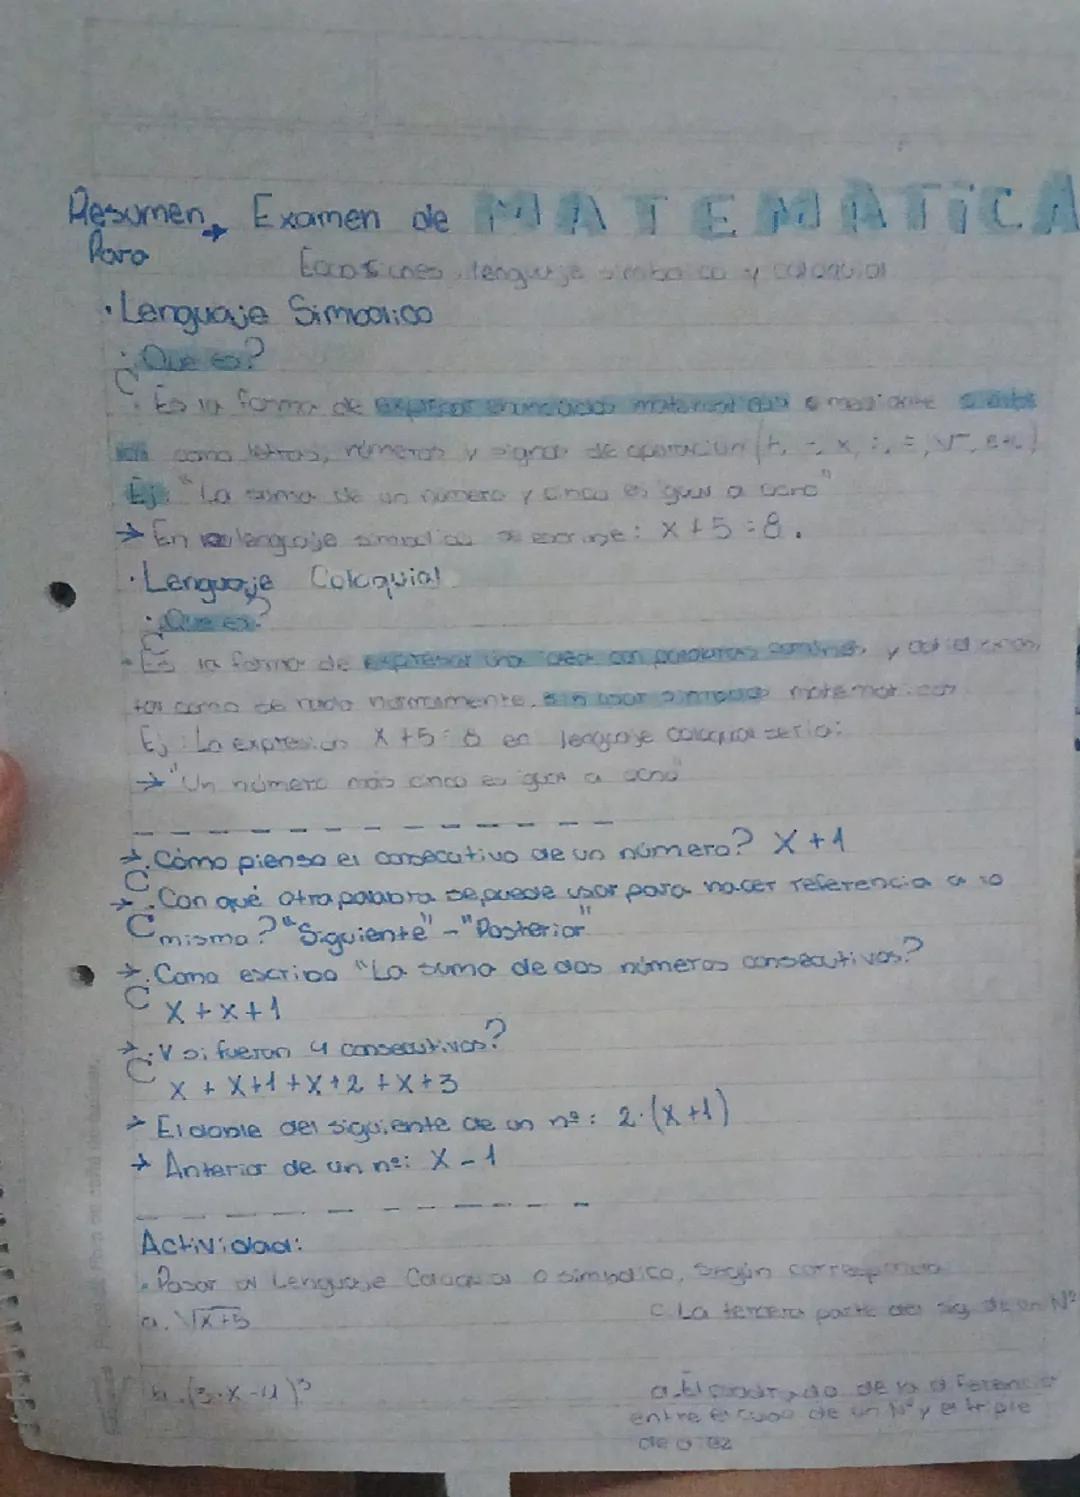 Resumen → Examen de MATEMÁTICA
Para
Ecuaciones, lenguaje simbolico y coloquial
· Lenguaje Simbolico
· ¿Que es?
· Es la forma de expresar enunciados matematicos mediante simbo
los como letras, números y signos de operación (+, -, x, :, =, √, etc.)
Ej: "La suma de un número y cinco es igual a ocho"
→ En lenguaje simbolico se escribe: X + 5 = 8.
· Lenguaje Coloquial
· ¿Que es?
· Es la forma de expresar una idea con palabras comunes, y cotidianas,
tal como se habla normalmente, sin usar simbolos matematicos
Ej: La expresion X + 5 = 8 en lenguaje coloquial seria:
→ "Un número más cinco es igual a ocho"
→ . Cómo pienso el consecutivo de un número? X + 1
→ . Con qué otra palabra se puede usar para hacer referencia a lo
mismo? "Siguiente" - "Posterior"
→ . Como escribo "La suma de dos números consecutivos?
X + X + 1
→ . Y si fueran 4 consecutivos?
X + X+1 + X+2 + X+3
→ El doble del siguiente de un nº: 2·(X+1)
→ Anterior de un nº: X - 1
Actividad:
· Pasar al Lenguaje Coloquial o simbolico, según corresponda
a. √X+5
c. La tercera parte del sig. de un Nº
b. (3·X-4)³
d. El cuadrado de la diferencia
entre el cubo de un Nº y el triple
de diez